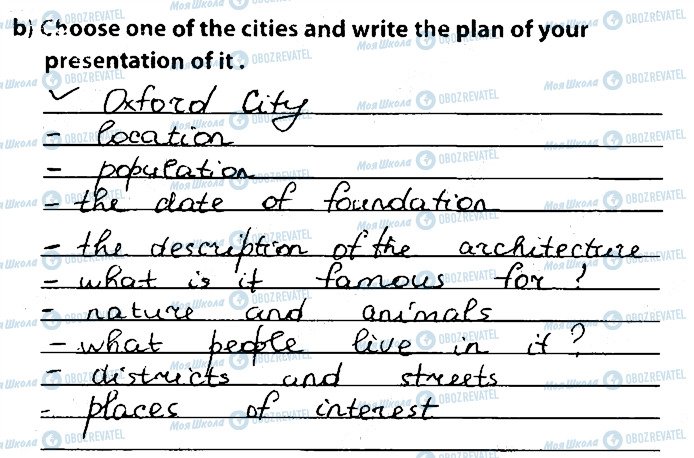 b) Choose one of the cities and write the plan of your
presentation of it.
✓ Oxford City
- location
- population
- the date of foundation
- the description of the architecture
- what is it famous for?
- nature and animals
- what people live in it?
- districts and streets
- places of interest